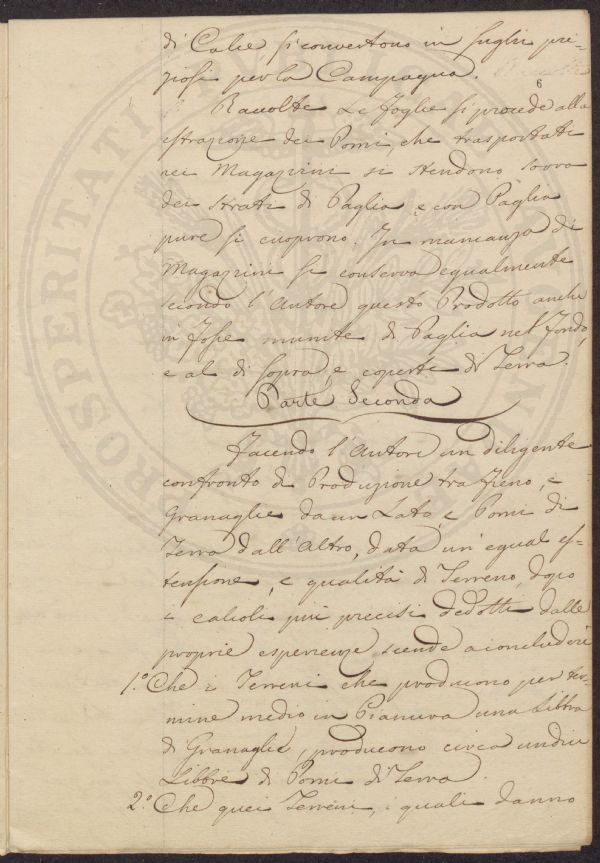 di Calce si convertono in sughi pre-
ziosi per la Campagna.
6
Raccolte Le foglie si procede alla
estrazione dei Pomi, che trasportati
nei Magazzini si stendono sovra
dei strati di Paglia e con Paglia
pure si cuoprono. In mancanza di
Magazzini si conserva egualmente
secondo l'Autore questo Prodotto anche
in fosse munite di Paglia nel fondo,
e al di sopra, e coperte di Terra.
Parte Seconda
Facendo l'Autore un diligente
confronto di Produzione tra Fieno, e
Granaglie da un Lato e Pomi di
Terra dall'Altro, data un'egual es-
tensione, e qualità di Terreno, dopo
i calcoli più precisi dedotti dalle
proprie esperienze scende a concludere
1.º Che i Terreni che producono per ter-
mine medio in Pianura una Libbra
di Granaglie, producono circa undici
Libbre di Pomi di Terra.
2.º Che quei Terreni, i quali danno
PROSPERITATI